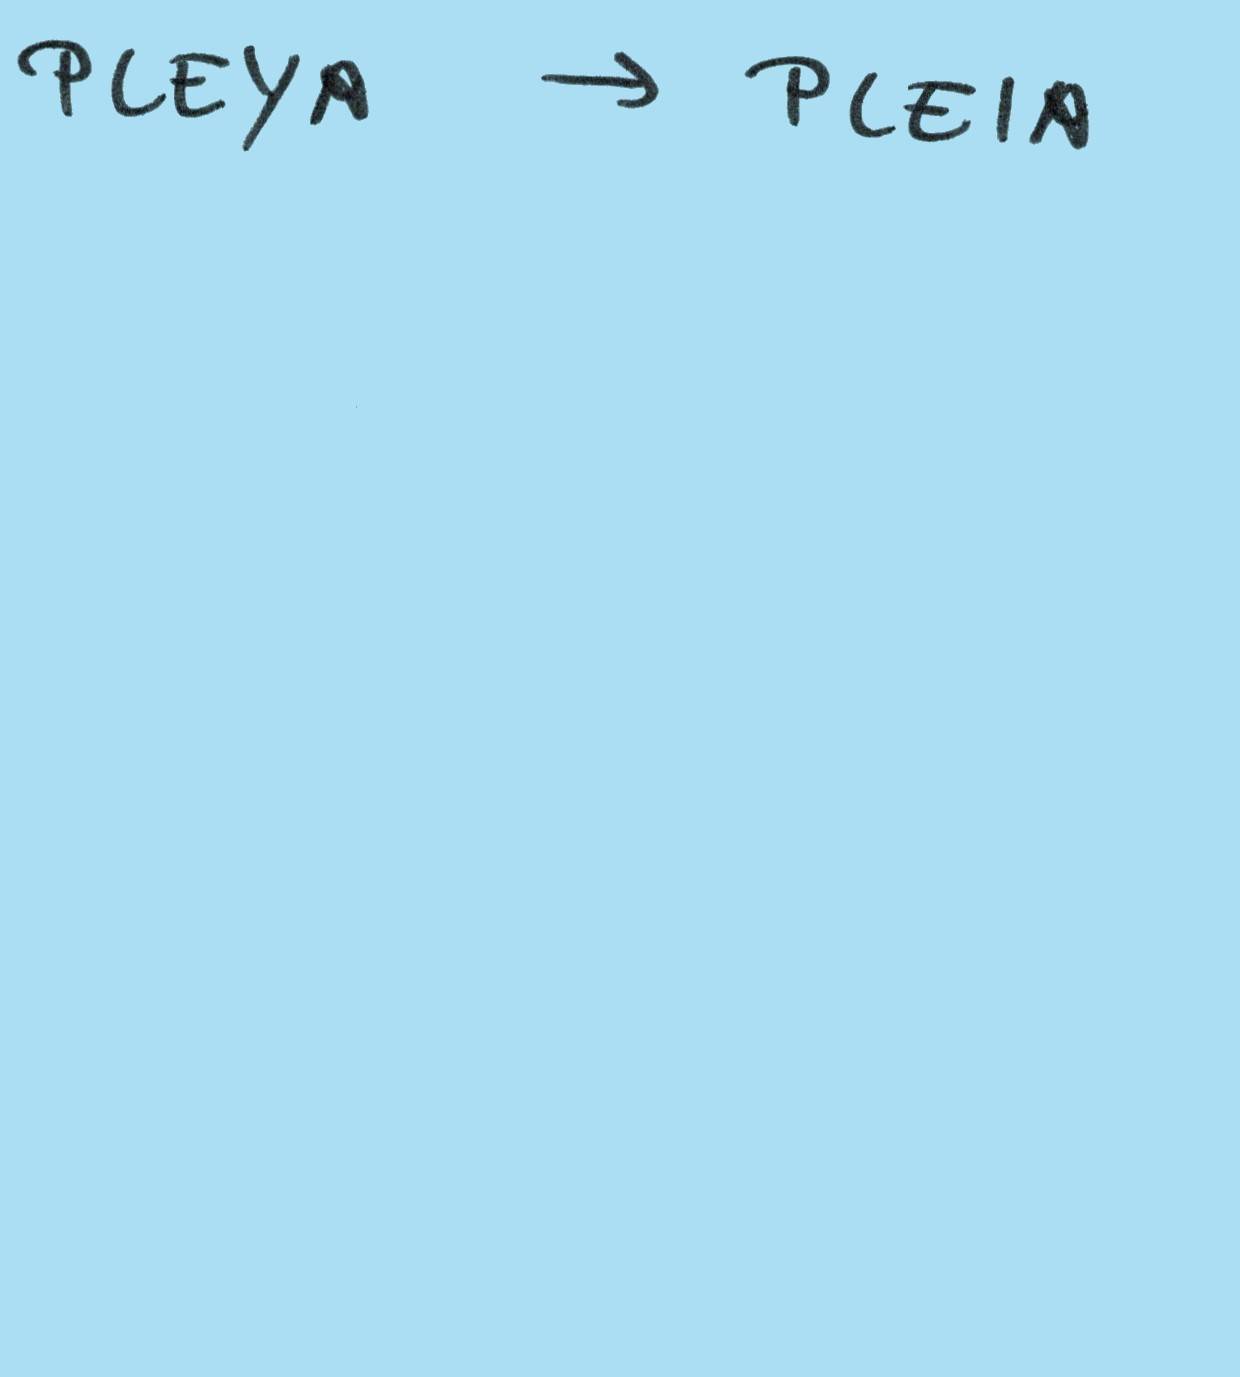 PLEYA → PLEIA